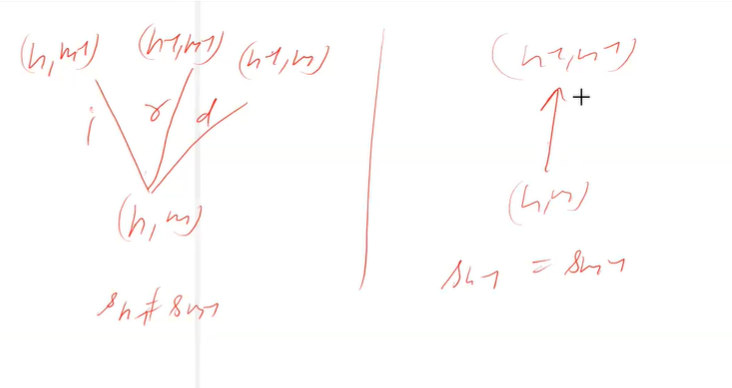 (n, m-1) (n-1, m-1) (n-1, m)
i r d
(n, m)
s n-1 ≠ s m-1
(n-1, m-1)
(n, m)
s n-1 = s m-1